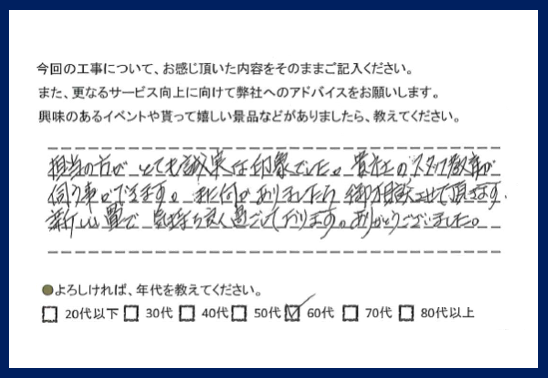 今回の工事について、お感じ頂いた内容をそのままご記入ください。
また、更なるサービス向上に向けて弊社へのアドバイスをお願いします。
興味のあるイベントや貰って嬉しい景品などがありましたら、教えてください。
担当の方が とても誠実な印象でした。貴社のスタッフ教育が
伺う事ができます。又何かありましたら 御相談させて頂きます。
新しい畳で 気持ち良く過ごしております。ありがとうございました。
●よろしければ、年代を教えてください。
20代以下 30代 40代 50代 60代 70代 80代以上